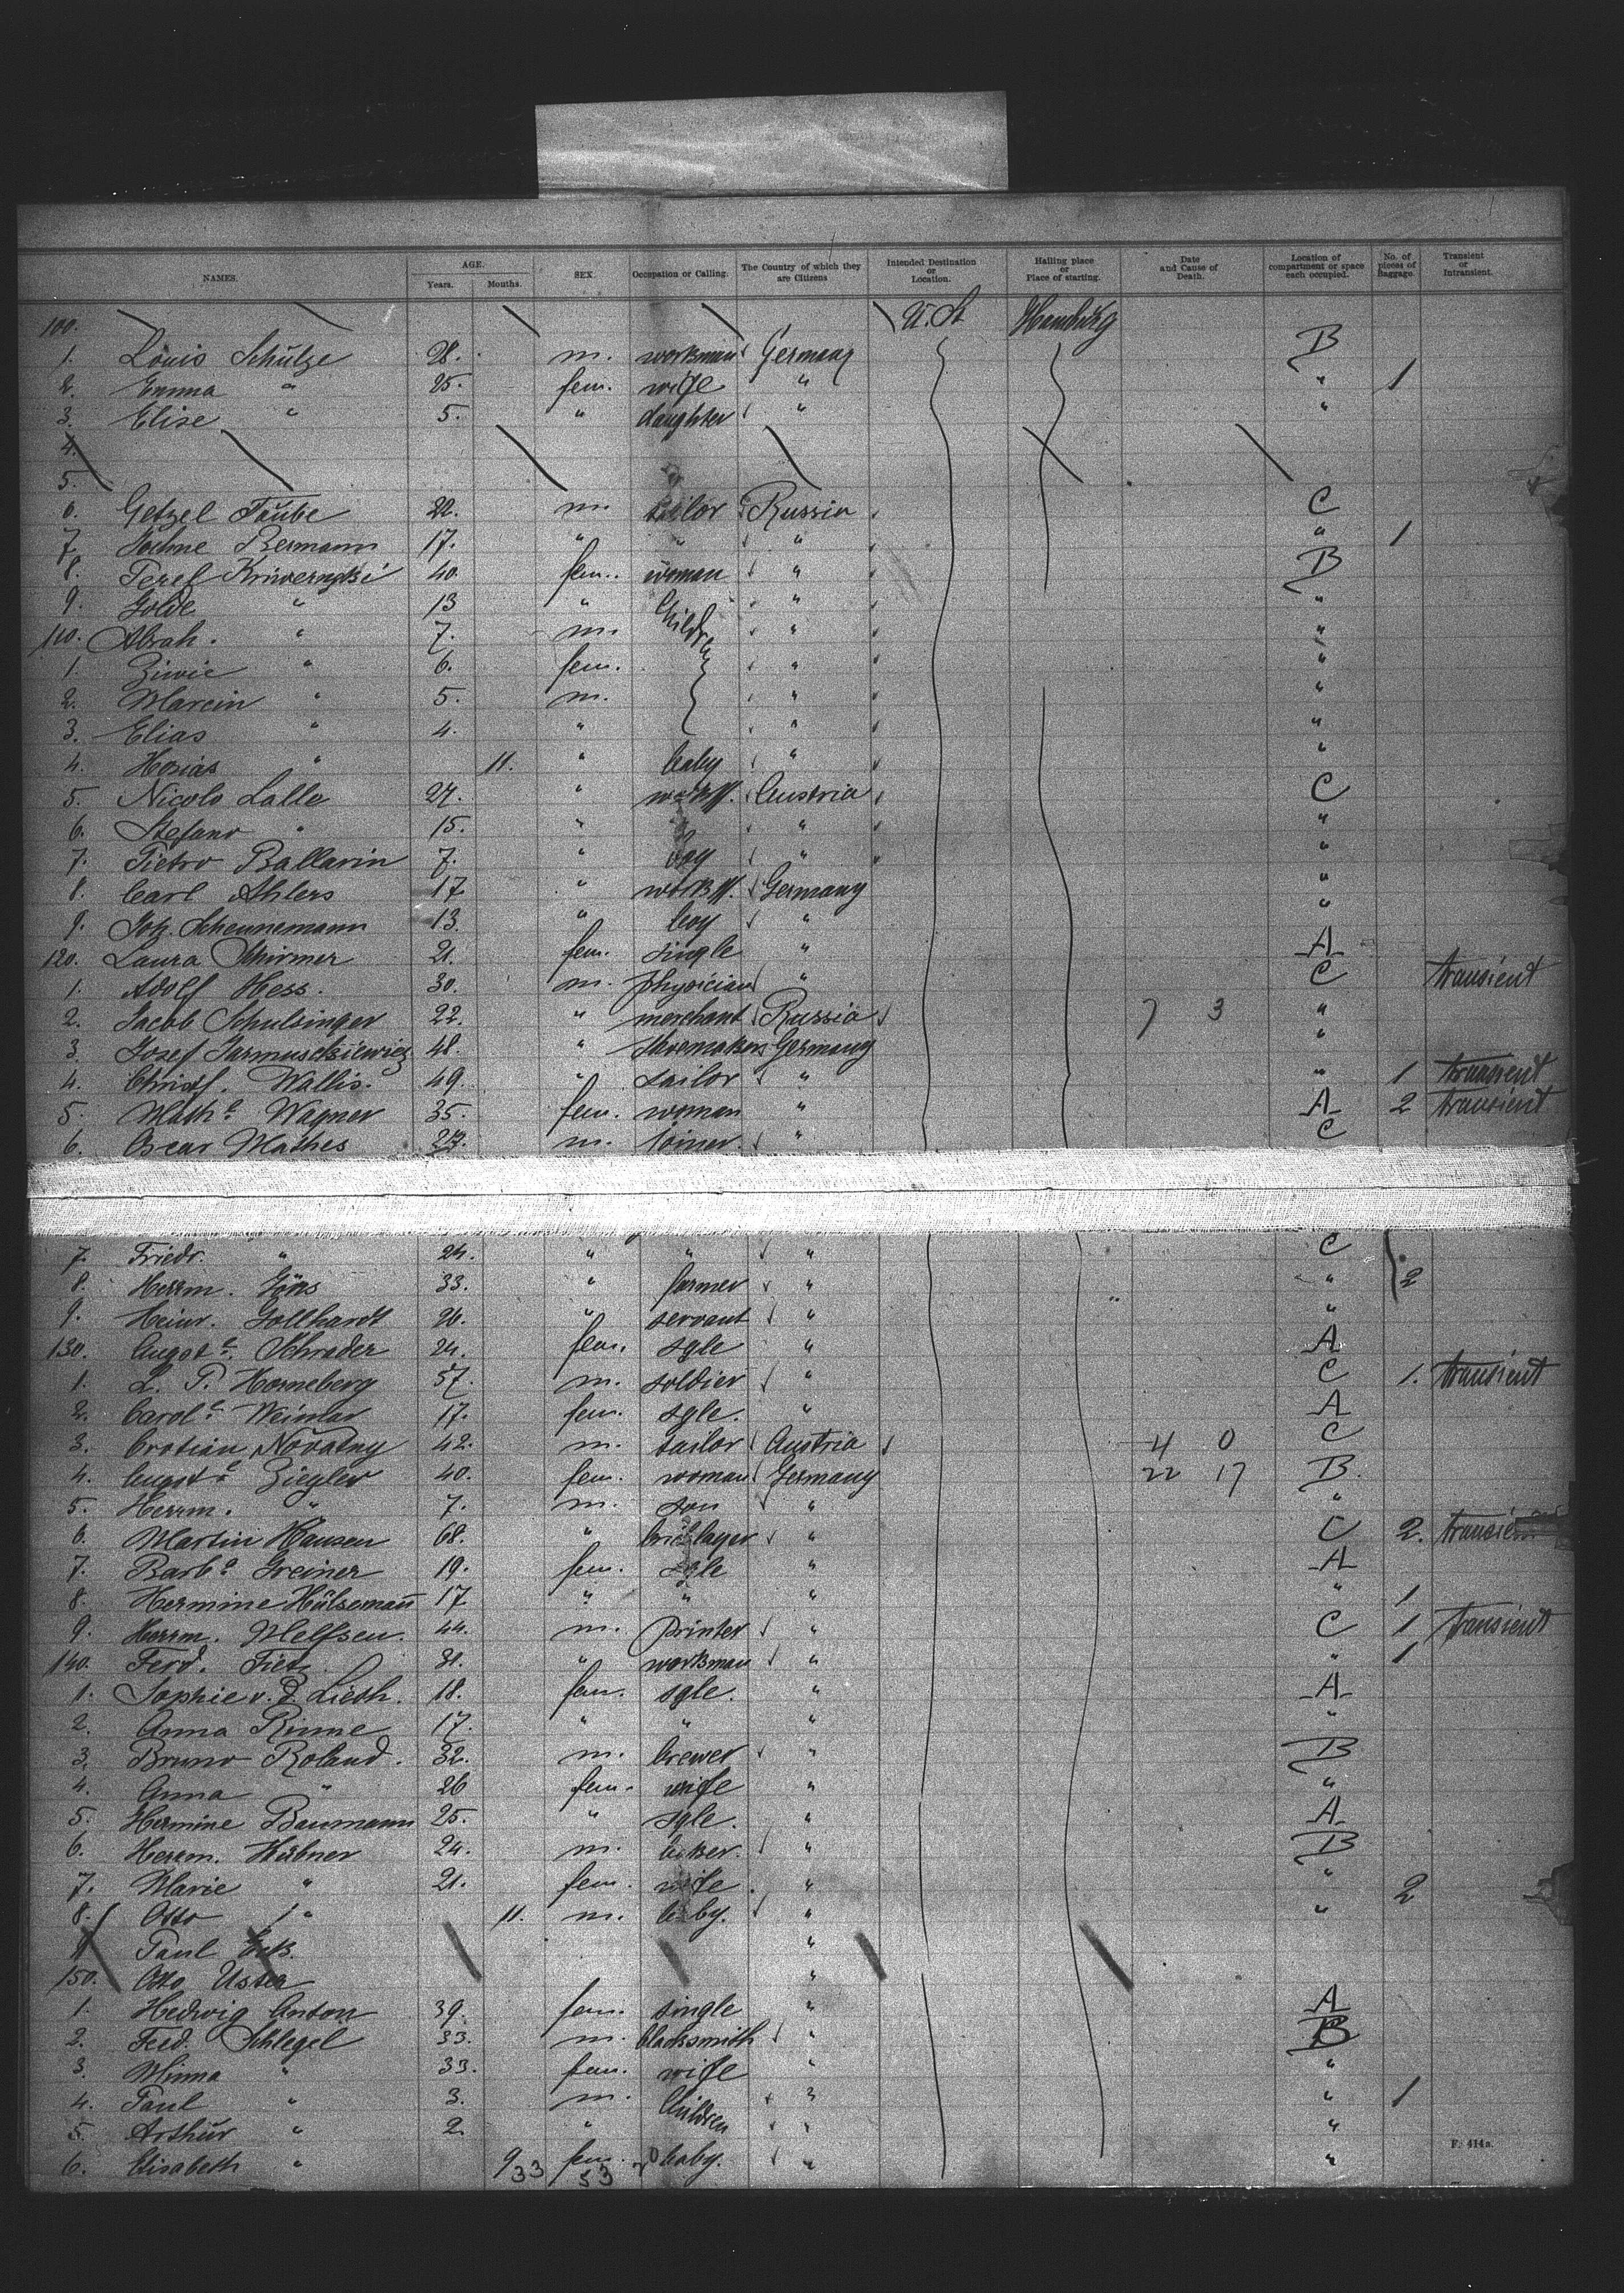 NAMES. AGE. Years. Months. SEX. Occupation or Calling. The Country of which they are Citizens Intended Destination or Location. Hailing place or Place of starting. Date and Cause of Death. Location of compartment or space each occupied. No. of pieces of Baggage. Transient or Intransient.
100. U. St Hamburg
1. Louis Schülze 28. m. workman Germany B
2. Emma " 25. fem. wife " " 1
3. Elise " 5. " daughter " "
4.
5.
6. Getzel Taübe 22. m. tailor Russia C
7. Bermann 17. " " " " 1
8. 40. fem. woman " B
9. Golde " 13 " Children " "
110. Abrah. " 7. m. " "
1. Ziwie " 6. fem. " "
2. Marcin " 5. m. " "
3. Elias " 4. " " "
4. Hosias " 11. " baby " "
5. Nicolo Lalle 27. " Austria C
6. Stefano " 15. " " "
7. Pietro Ballarin 7. " boy " "
8. Carl Ahlers 17 " Germany "
9. Joh. Scheunemann 13. " boy " "
120. Laura Schirmer 21. fem. single " A
1. Adolf Hess. 30. m. physician " C transient
2. Jacob Schulsinger 22. " merchant Russia 7 3 "
3. Josef 48. " shoemaker Germany "
4. Christf. Wallis. 49. " sailor " " 1 transient
5. Math.e Wagner 35. fem. woman " A 2 transient
6. Oscar Mathes 27. m. joiner. " C
7. Friedr. " 24. " " " C
8. Herrm. 33. " farmer " " 2
9. Heinr. Gollhardt 26. " servant " "
130. August.e Schrader 24. fem. sgle " A
1. L. P. Horneberg 57. m. soldier " C 1. transient
2. Carol.e Weimar 17. fem. sgle. " A
3. Novatny 42. m. tailor Austria 4 0 C
4. August.e Ziegler 40. fem. woman Germany 22 17 B.
5. Herrm. " 7. m. son " "
6. Martin Hansen 68. " bricklayer " C 2. transient
7. Barb.a Greiner 19. fem. sgle " A
8. Hermine Hülsemañ 17 " " " " 1
9. Herrm. Melfsen. 44. m. Printer " C 1 transient
140. Ferd. Tietz. 31. " workman " " 1
1. Sophie v. d. Lieth. 18. fem. sgle. " A
2. Anna Rinne 17. " " " "
3. Bruno Roland. 32. m. brewer " B
4. Anna " 26 fem. wife " "
5. Hermine Baumann 25. " sgle. " A
6. Herrm. Hübner 24. m. baker. " B
7. Marie " 21. fem. wife " " 2
8. Otto " 11. m. baby. " "
9. Paul "
150. Otto "
1. Hedwig Anton 39. fem. single " A
2. Ferd. Schlegel 33. m. blacksmith " B
3. Minna " 33. fem. wife " "
4. Paul " 3. m. Children " " 1
5. Arthür " 2. " " "
6. Elisabeth " 9 fem. baby. " "
33 53
F. 414a.